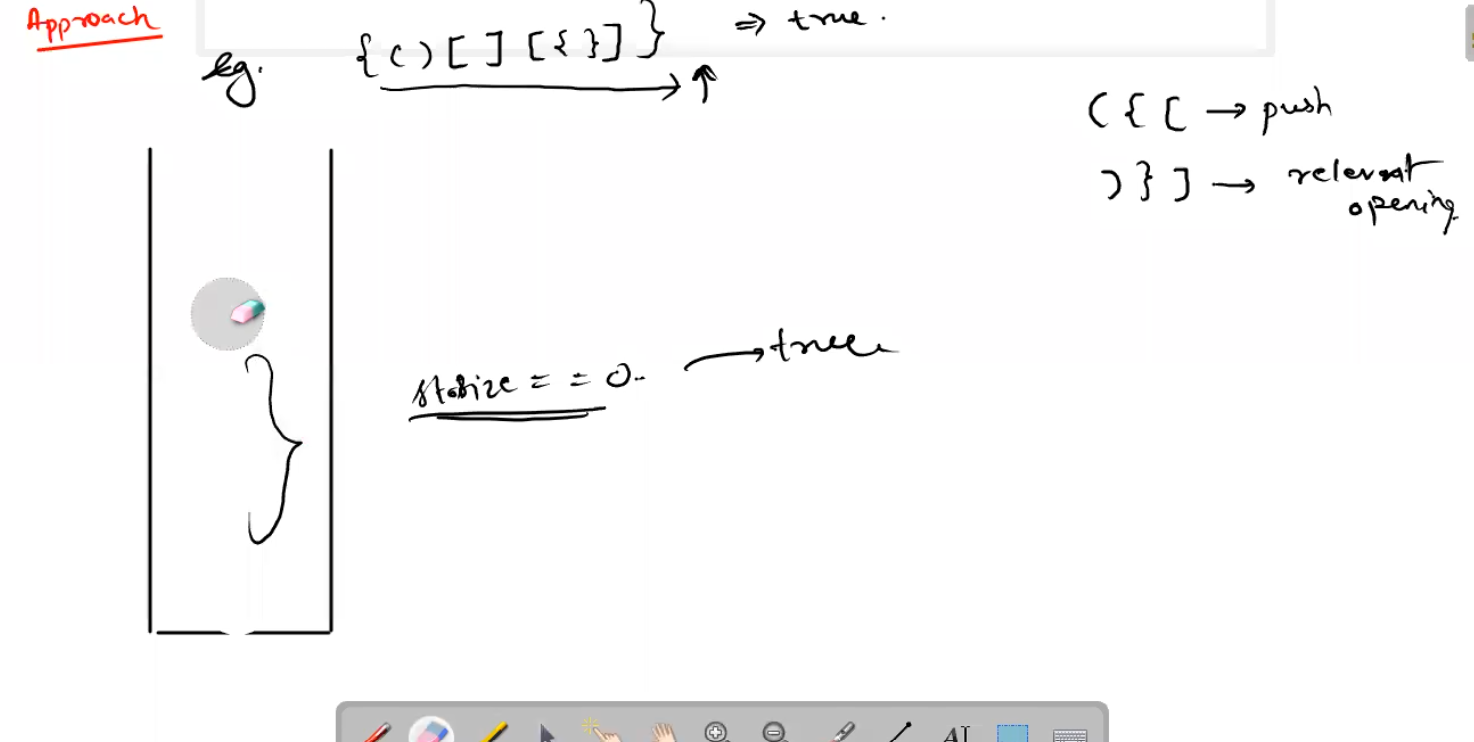 Approach
eg. {()[][{}]} ⇒ true.
( { [ → push
) } ] → relevant
opening.
st.size == 0. → true
AI